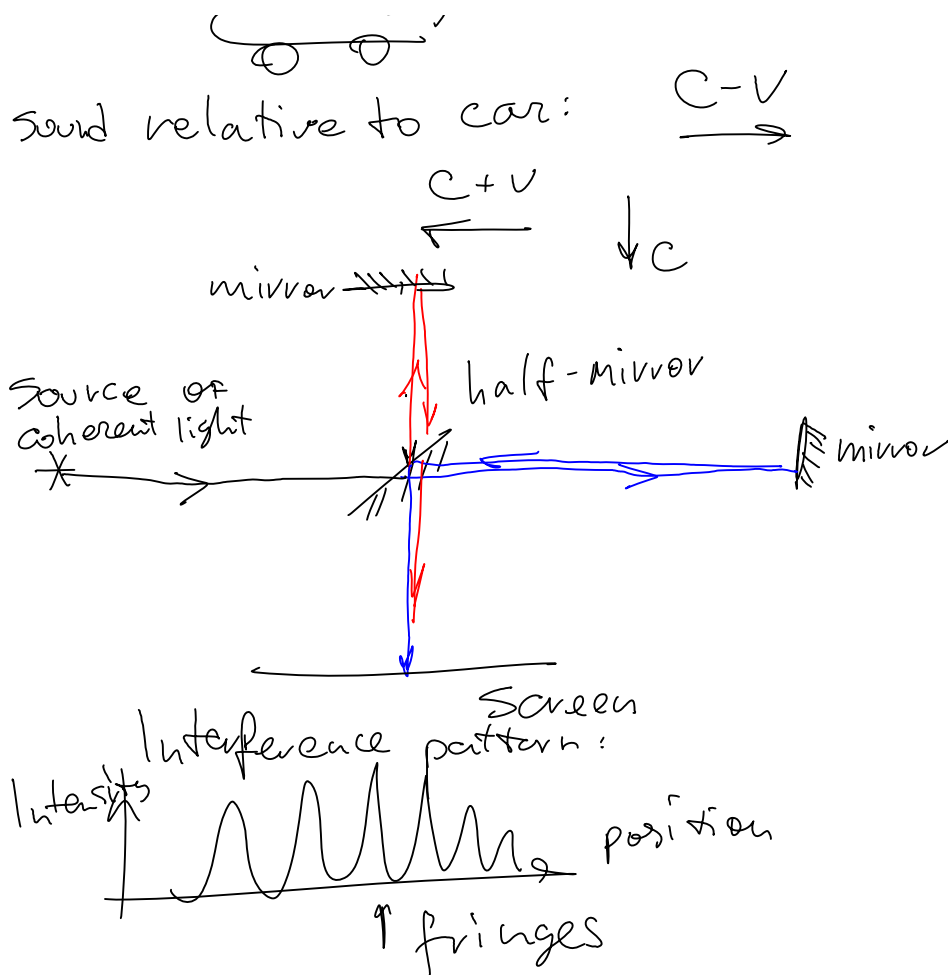 sound relative to car:
C-V
C+V
C
mirror
half-mirror
Source of
coherent light
mirror
Screen
Interference pattern:
Intensity
position
fringes